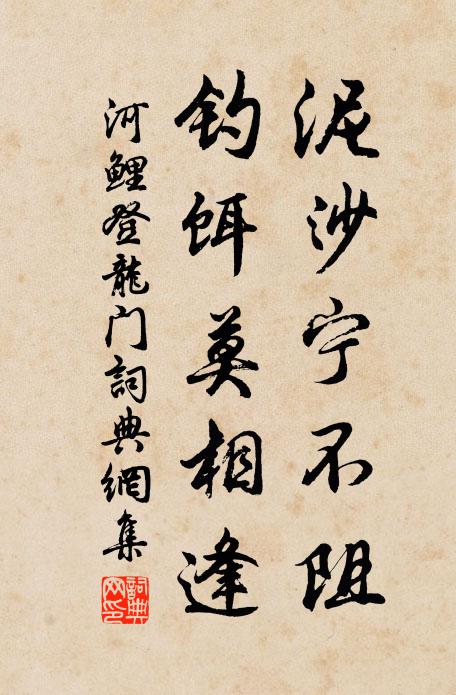 泥沙宁不阻
钓饵莫相逢
河鲤登龍门詞典網集
詞典网印